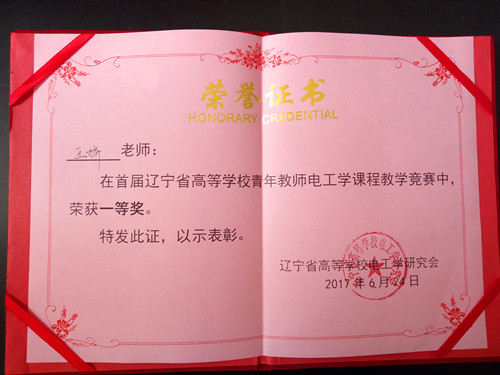 荣誉证书
HONORARY CREDENTIAL
王娇 老师：
在首届辽宁省高等学校青年教师电工学课程教学竞赛中，
荣获一等奖。
特发此证，以示表彰。
辽宁省高等学校电工学研究会
2017年6月24日